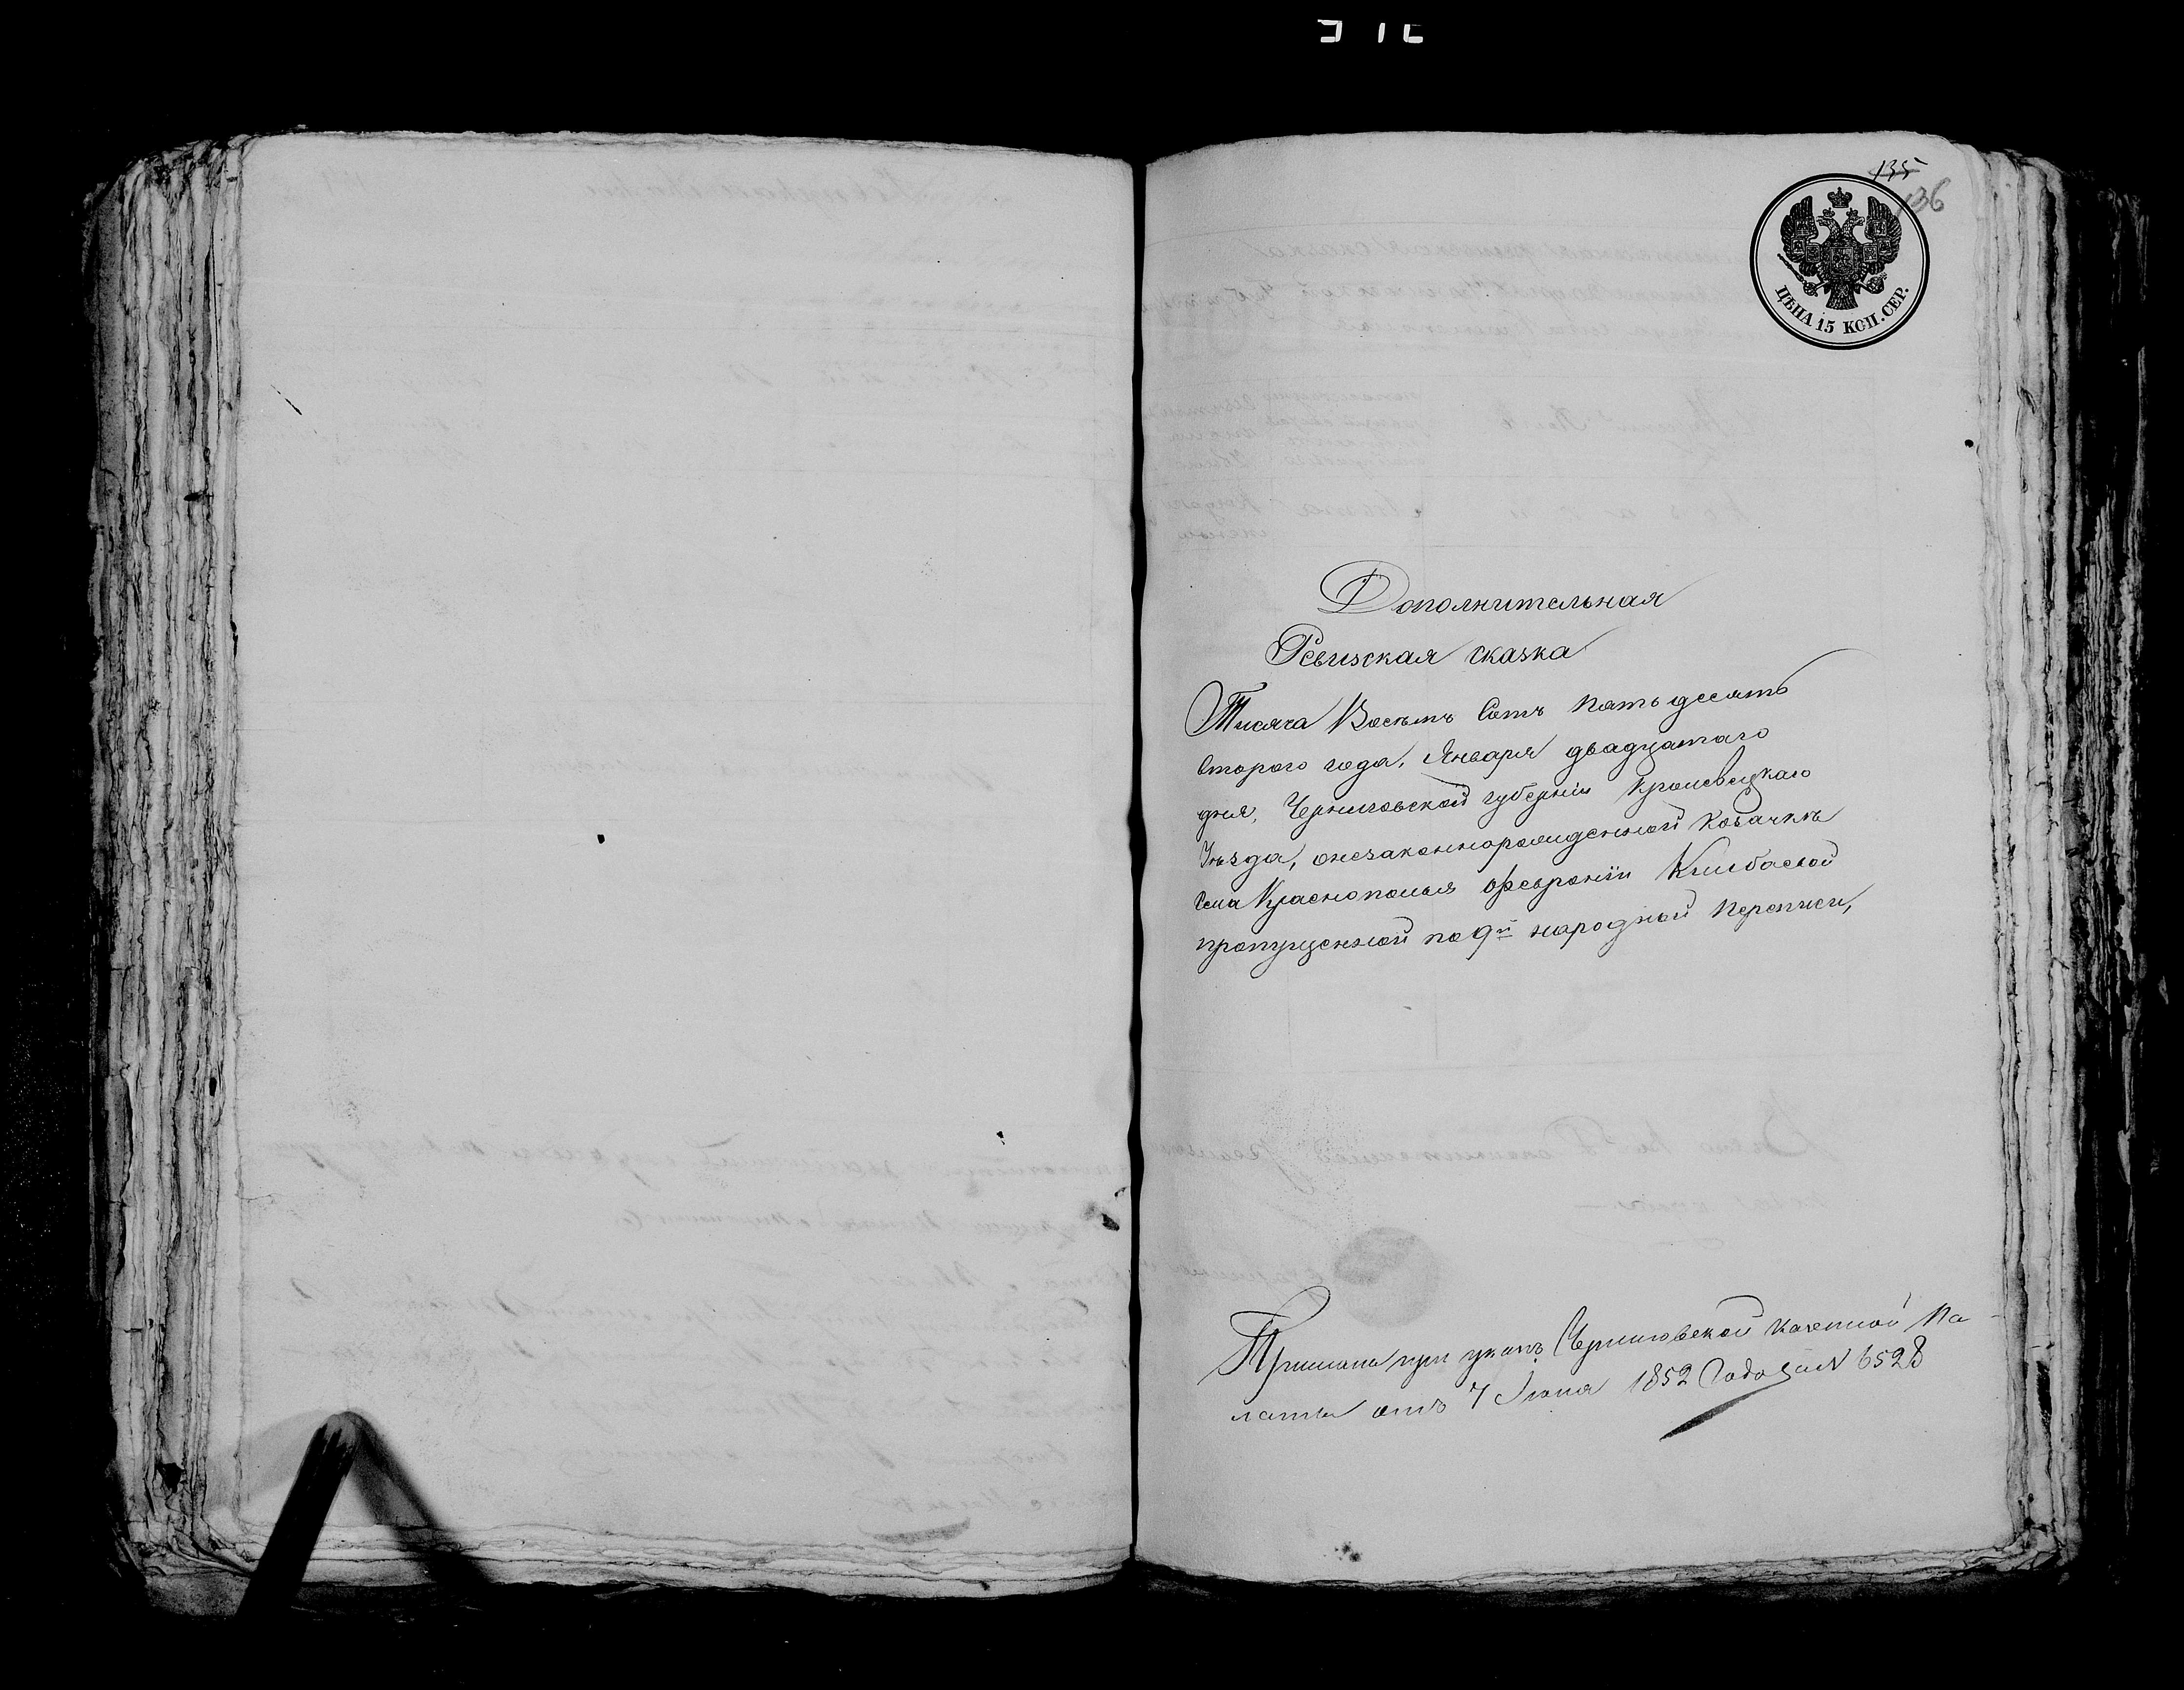 135
136
ЦѢНА 15 КОП. СЕР.
Дополнительная
Ревизская сказка
Тисяча Восемъ Сотъ Пятьдесятъ
втораго года, Января двадцатаго
дня, Черниговской губерніи Кролевецкаго
Уѣзда, онезаконнорожденной козачкѣ
села Краснополья Февроніи
пропущенной по 9й народной Переписи,
при указѣ Черниговской Казенной Па-
латы отъ 7 Іюня 1852 Года за № 6528